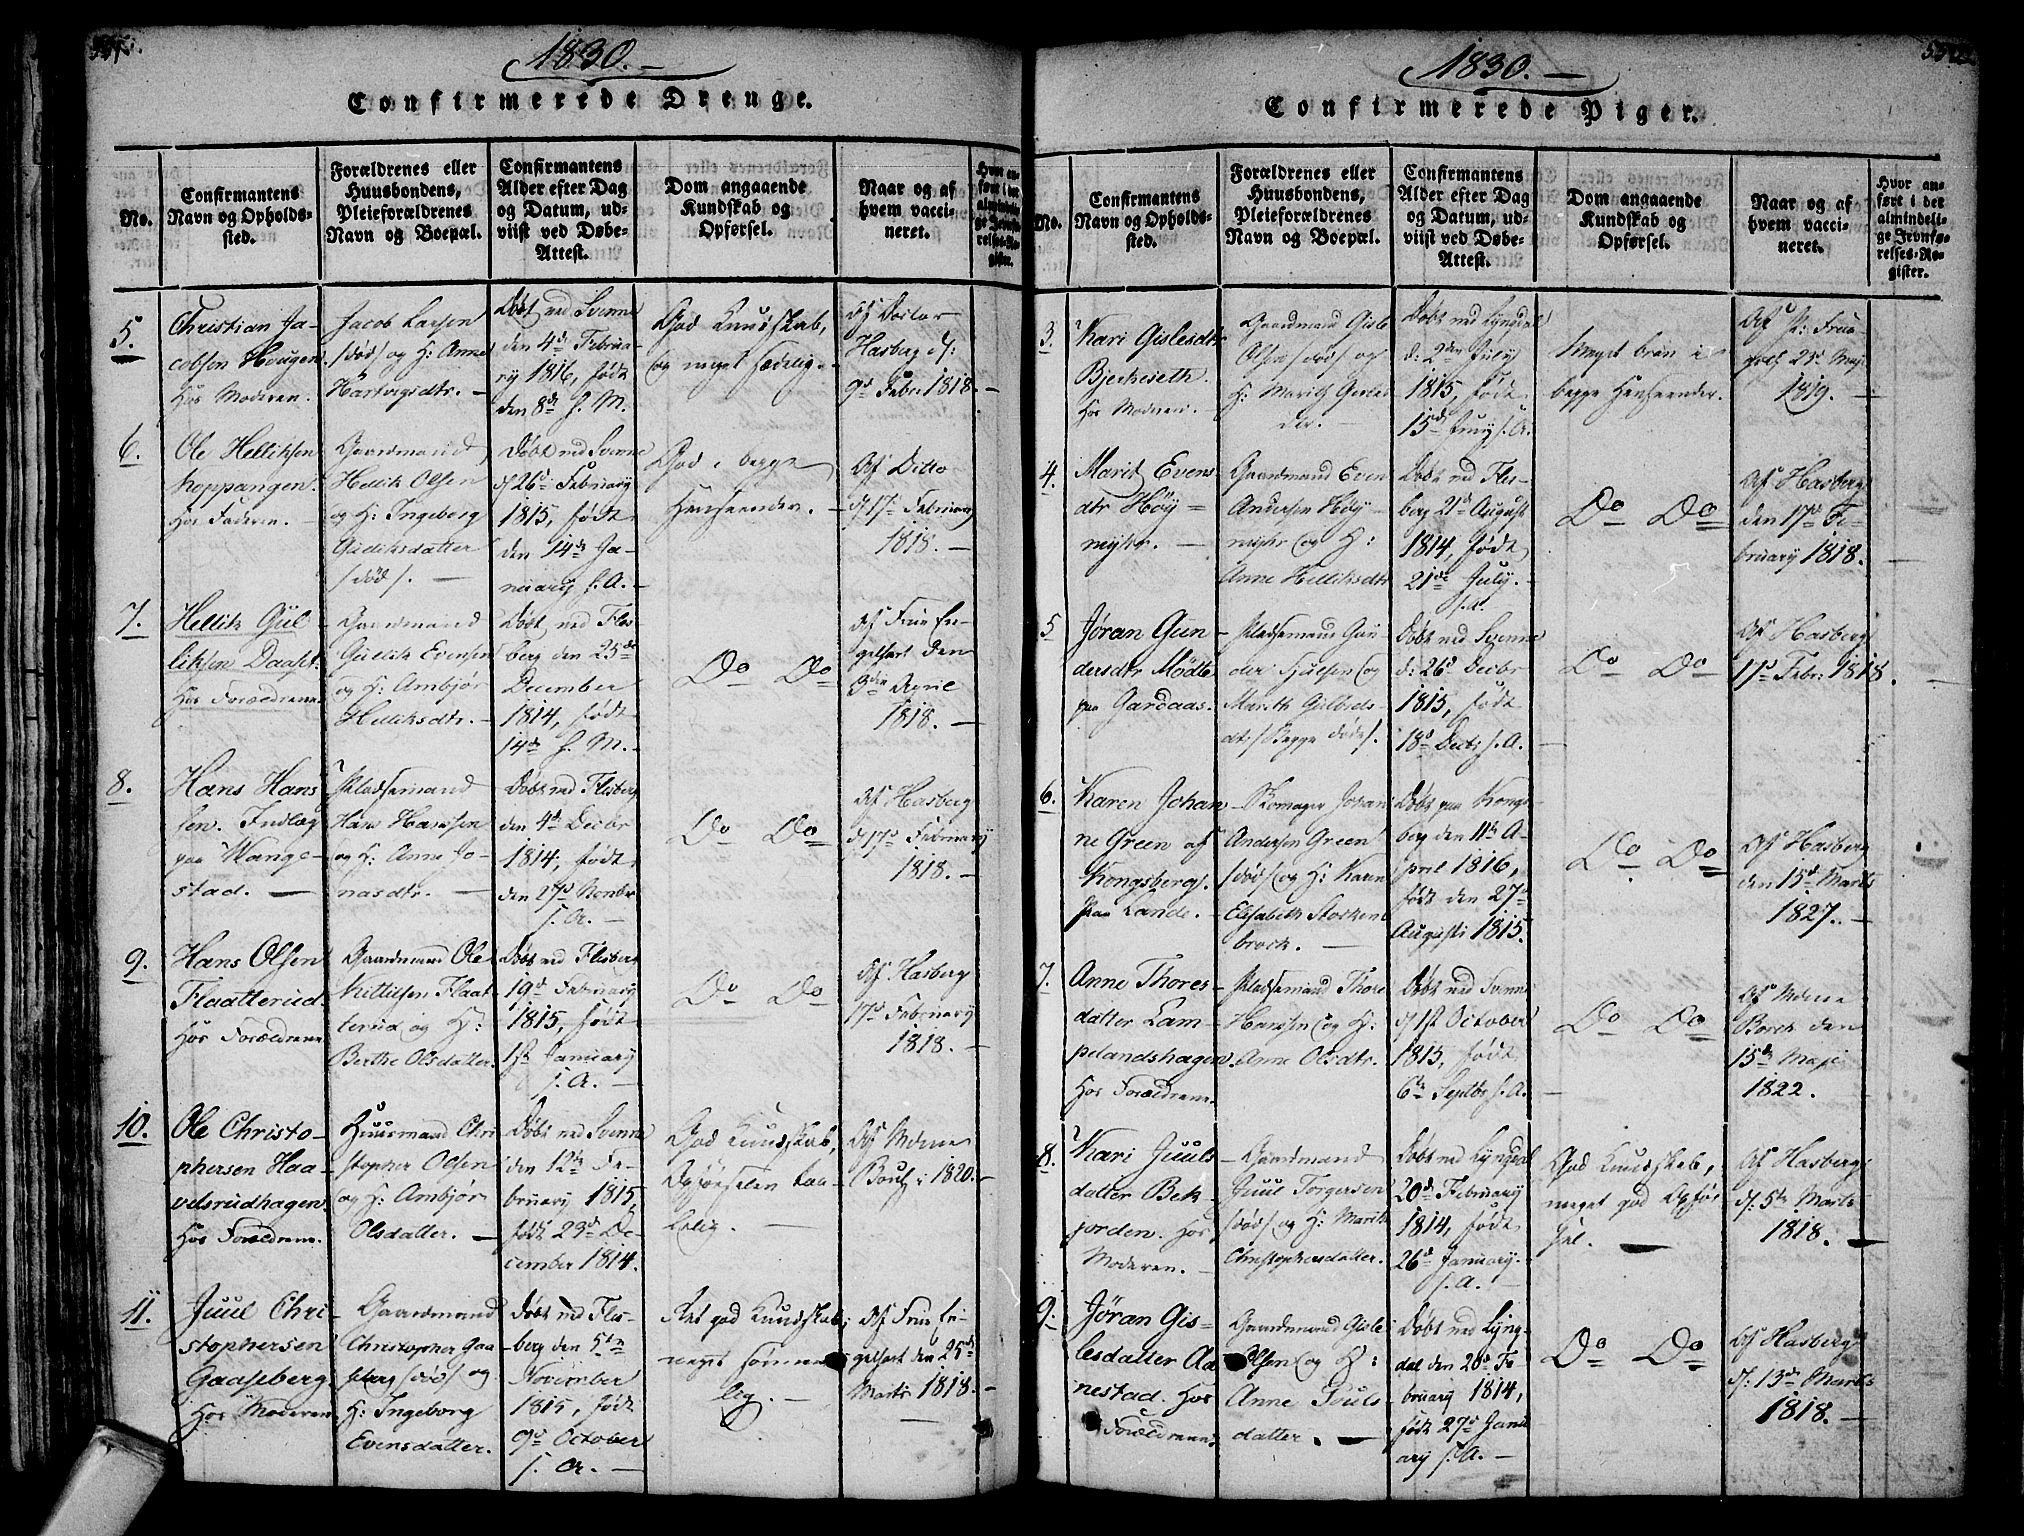 1830.
Confirmerede Drenge.
No.
Confirmantens
Navn og Opholds-
sted.
Forældrenes eller
Huusbondens,
Pleieforældrenes
Navn og Boepæl.
Confirmantens
Alder efter Dag
og Datum, ud-
viist ved Døbe-
Attest.
Dom angaaende
Kundskab og
Opførsel.
Naar og af
hvem vacci-
neret.
Hvor an-
ført i det
almindeli-
ge Jevnfø-
relses-Re-
gister.
5.
Christian Ja-
cobsen Hougen
Hos Moderen.
Jacob Larsen
/død/ og H: Anne
Hartvigsdtr. -
Døbt ved Svenne
den 4de Februa-
ry 1816, født
den 8de f. M.
God Kundskab,
og meget sædelig. -
Af Doctor
Hasberg d:
9d Febr: 1818. -
6.
Ole Helliksen
Koppangen.
Hos Faderen. -
Gaardmand
Hellik Olsen
og H: Ingeberg
Gudiksdatter
/død/. -
Døbt ved Svenne
d. 26d Februar
1815, født
den 14de Ja-
nuary s. A. -
God i begge
Henseender. -
Af Ditto
d. 17d Februar
1818. -
7.
Hellik Gul
liksen Daaset.
Hos Forældrene
Gaardmand
Gullik Evensen
og H: Ambjør
Helliksdtr. -
Døbt ved Fles-
berg den 25de
December
1814, født
14de s. M. -
Do Do
Af Frue En-
gelhart den
3den April
1818. -
8.
Hans Hans
sen. Indlæg
paa Wange-
stad. -
Pladsemand
Hans Hansen
og H: Anne Jo-
nasdtr. -
Døbt ved Flesberg
den 4de Decbr
1814, født
den 27d Novnbr
s. A. -
Do Do
Af Hasberg
d. 17d Februarÿ
1818. -
9.
Hans Olsen
Flaatterud.
Hos Forældrene
Gaardmand Ole
Kittilsen Flaat-
terud og H:
Berthe Olsdatter.
Døbt ved Flesberg
19d Februarÿ
1815, født
1st January
s. A. -
Do Do
Af Hasberg
17d Februarÿ
1818. -
10.
Ole Christo-
phersen Haa-
velsrudhagen
Hos Forældrene.
Huusmand Chri
stopher Olsen
og H: Ambjør
Olsdatter. -
Døbt ved Svenne
den 12te Fe-
bruary 1815,
født 23d De-
cember 1814.
God Kundskab,
Opførselen taa-
lelig. -
Af Mdme
Bork i 1820. -
11.
Juul Chri-
stophersen
Gaaseberg.
Hos Moderen
Gaardmand
Christopher Gaa
seberg /død/ og
H: Ingeborg
Evensdatter.
Døbt ved Fles-
berg den 5te
November
1815, født
9d October
s. A. -
Ret god Kundskab,
meget sømme-
lig. -
Af Frue En-
gelhart den 25de
Marts 1818. -
1830. -
Confirmerede Piger.
No.
Confirmantens
Navn og Opholds-
sted.
Forældrenes eller
Huusbondens,
Pleieforældrenes
Navn og Boepæl.
Confirmantens
Alder efter Dag
og Datum, ud-
viist ved Døbe-
Attest.
Dom angaaende
Kundskab og
Opførsel.
Naar og af
hvem vacci-
neret.
Hvor an-
ført i det
almindeli-
ge Jevnfø-
relses-Re-
gister.
3.
Kari Gislesdtr
Bjerkeseth.
Hos Moderen.
Gaardmand Gisle
Olsen /død/ og
H: Marith
Døbt ved Lyngdal
d: 2den July
1815, født
15d Juny s. A.
Meget brav i
begge Henseender.
Af
23d May
1819. -
4.
Marit Evens
dtr Høÿ=
mÿhr. -
Gaardmand Even
Andersen Høÿ-
mÿhr og H:
Anne Helliksdtr
Døbt ved Fles-
berg 21d August
1814, født
21de July.
s. A.
Do Do
Af Hasberg
den 17d Fe-
bruary 1818. -
5
Jøran Gun
dersdtr Mødte
paa Gardaas.
Pladsemand Gun
der Juulsen og
Marith Gulbrds
dtr /Begge døde/.
Døbt ved Svenne
d: 26d Decbr
1815, født
18d Decbr s. A. -
Do Do
Af Hasberg
17d Febr: 1818. -
6.
Karen Johan
ne Green af
Kongsberg.
paa Lande. -
Skomager Johan
Andersen Green
/død/ og H: Karen
Elisabeth Storken
brock. -
Døbt paa Kongs-
berg den 11te A-
pril 1816,
født den 27de
Augusti 1815.
Do Do
Af Hasberg
den 15de Marts
1827. -
7.
Anne Thores-
datter Lam-
pelandshagen.
Hos Forældrene.
Pladsemand Thore
Hansen og H:
Anne Olsdtr.
Døbt ved Svenne
d. 1st October
1815, født
6te Septbr s. A. -
Do Do
Af Mdme
Borch den
15de Maji
1822. -
8.
Kari Juuls
datter Bek-
jorden. Hos
Moderen. -
Gaardmand
Juul Torgersen
/død/ og H: Marith
Christophersdatter.
Døbt ved Lyngdal
20de Februarÿ
1814, født
26d January.
s. A. -
God Kundskab,
meget god Opfør-
sel. -
Af Hasberg
d: 5te Marts
1818. -
9.
Jøran Gis-
lesdatter Aa-
nestad. Hos
Forældrene.
Gaardmand Gisle
Olsen og H:
Anne Pouls-
datter. -
Døbt ved Lyng-
dal den 20d Fe-
bruary 1814,
født 27d Janu
ary s. A. -
Do Do
Af Hasberg
d: 13de Marts
1818. -